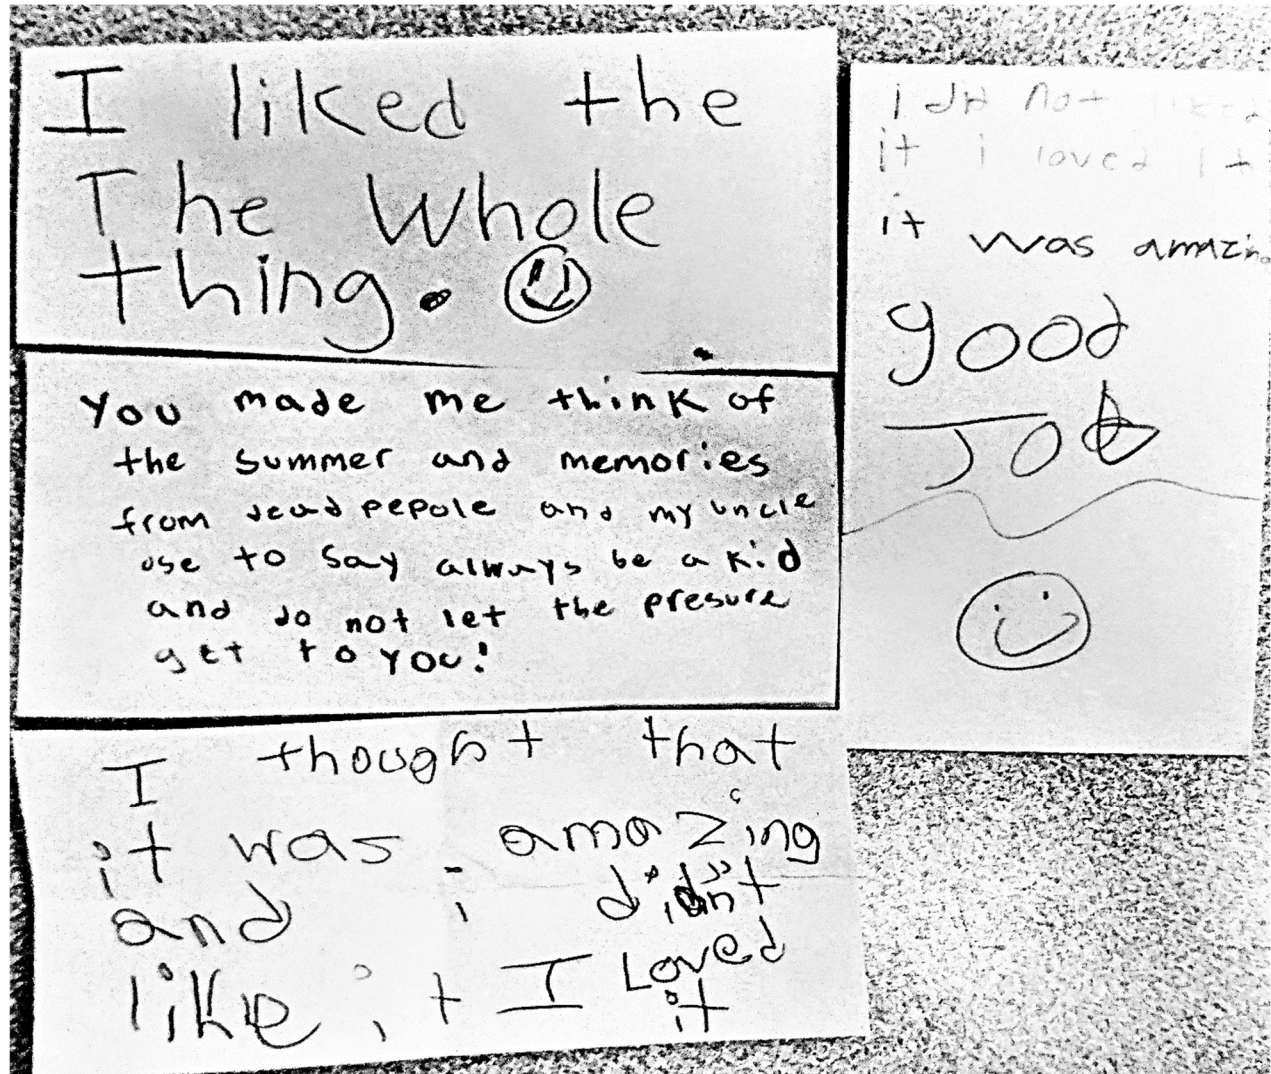 I liked the
The Whole
thing.
You made me think of
the summer and memories
from dead pepole and my uncle
use to say always be a kid
and do not let the presure
get to you!
I thought that
it was amazing
and i didn't
like it I Loved
it
i did not liked
it i loved it
it was amazing
good
Job